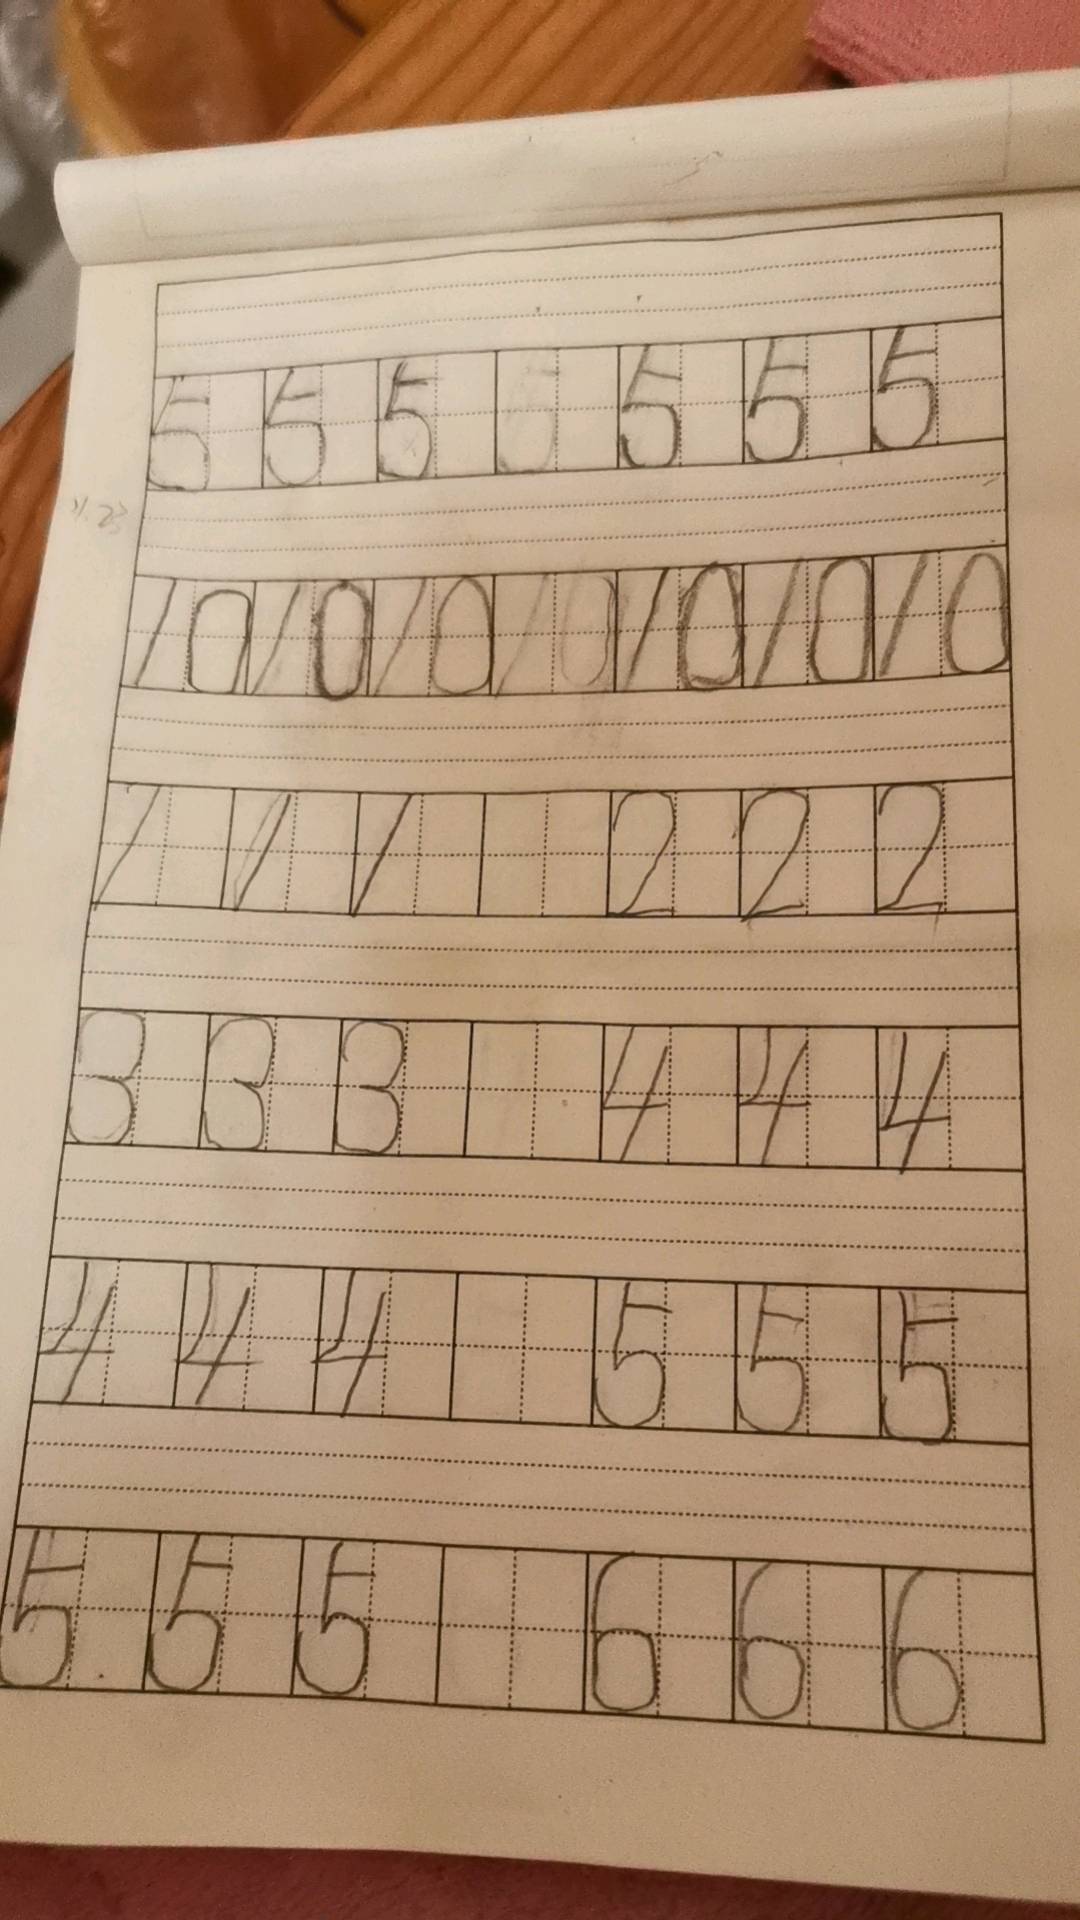 5 5 5 5 5 5 5
10 10 10 10 10 10 10
1 1 1 2 2 2
3 3 3 4 4 4
4 4 4 5 5 5
5 5 5 6 6 6